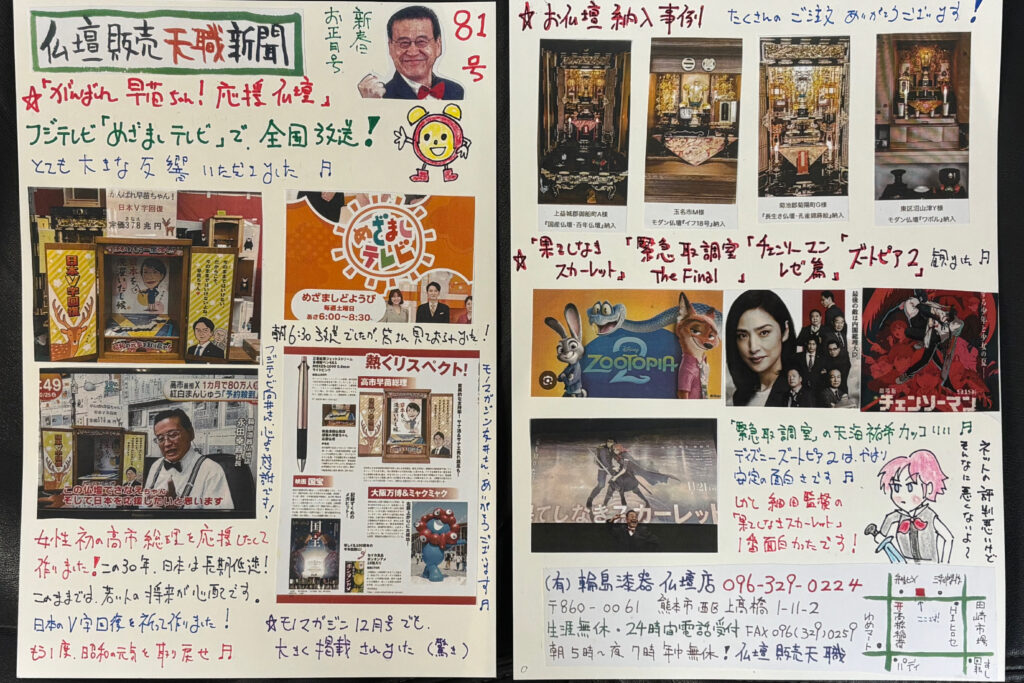 仏壇販売天職新聞
新春に
お正月号
81号
☆「がんばれ 早苗ちゃん! 応援仏壇」
フジテレビ「めざましテレビ」で、全国放送!
とても大きな反響いただきました♬
がんばれ早苗ちゃん!
日本V字回復
評価378兆円
日本V字回復
めざましテレビ
めざましどようび
毎週土曜日
あさ6:00~8:30
朝6:30放送でしたが、皆さん見ておられました!
:49
高市首相 X 1カ月で80万人
紅白まんじゅう「予約殺到」
この仏壇で
そして日本を
思います
熱くリスペクト!
高市早苗総理
映画 国宝
大阪万博&ミャクミャク
女性初の高市総理を応援したくて
作りました!この30年、日本は長期低迷!
このままでは、若い人の将来が心配です。
日本のV字回復を祈って作りました!
もう1度、昭和の元気を取り戻せ♬
☆モノマガジン12月号でも、
大きく掲載されました(驚き)
☆お仏壇納入事例 たくさんのご注文ありがとうございます!
上益城郡御船町A様
『国産仏壇・百年仏壇』納入
玉名市M様
モダン仏壇『イフ18号』納入
菊池郡菊陽町G様
『長生き仏壇・孔雀蒔絵』納入
東区沼山津Y様
モダン仏壇『ワポル』納入
☆「果てしなきスカーレット」「緊急取調室 The Final」「チェンソーマン レゼ篇」「ズートピア2」観ました♬
Disney
ZOOTOPIA
2
最後の敵は内閣総理大臣。
劇場版
チェンソーマン
11/21
果てしなきスカーレット
「緊急取調室」の天海祐希カッコいい♬
ディズニーズートピア2は、やはり
安定の面白さです♬
して細田監督の
「果てしなきスカーレット」
1番面白かったです!
ネットの評判悪いけど
そんなに悪くないよ~
(有)輪島漆器仏壇店 096-329-0224
〒860-0061 熊本市西区上高橋1-11-2
生涯無休・24時間電話受付 FAX 096(329)0259
朝5時~夜7時 年中無休!仏壇販売天職
ここだよ!
田崎市場